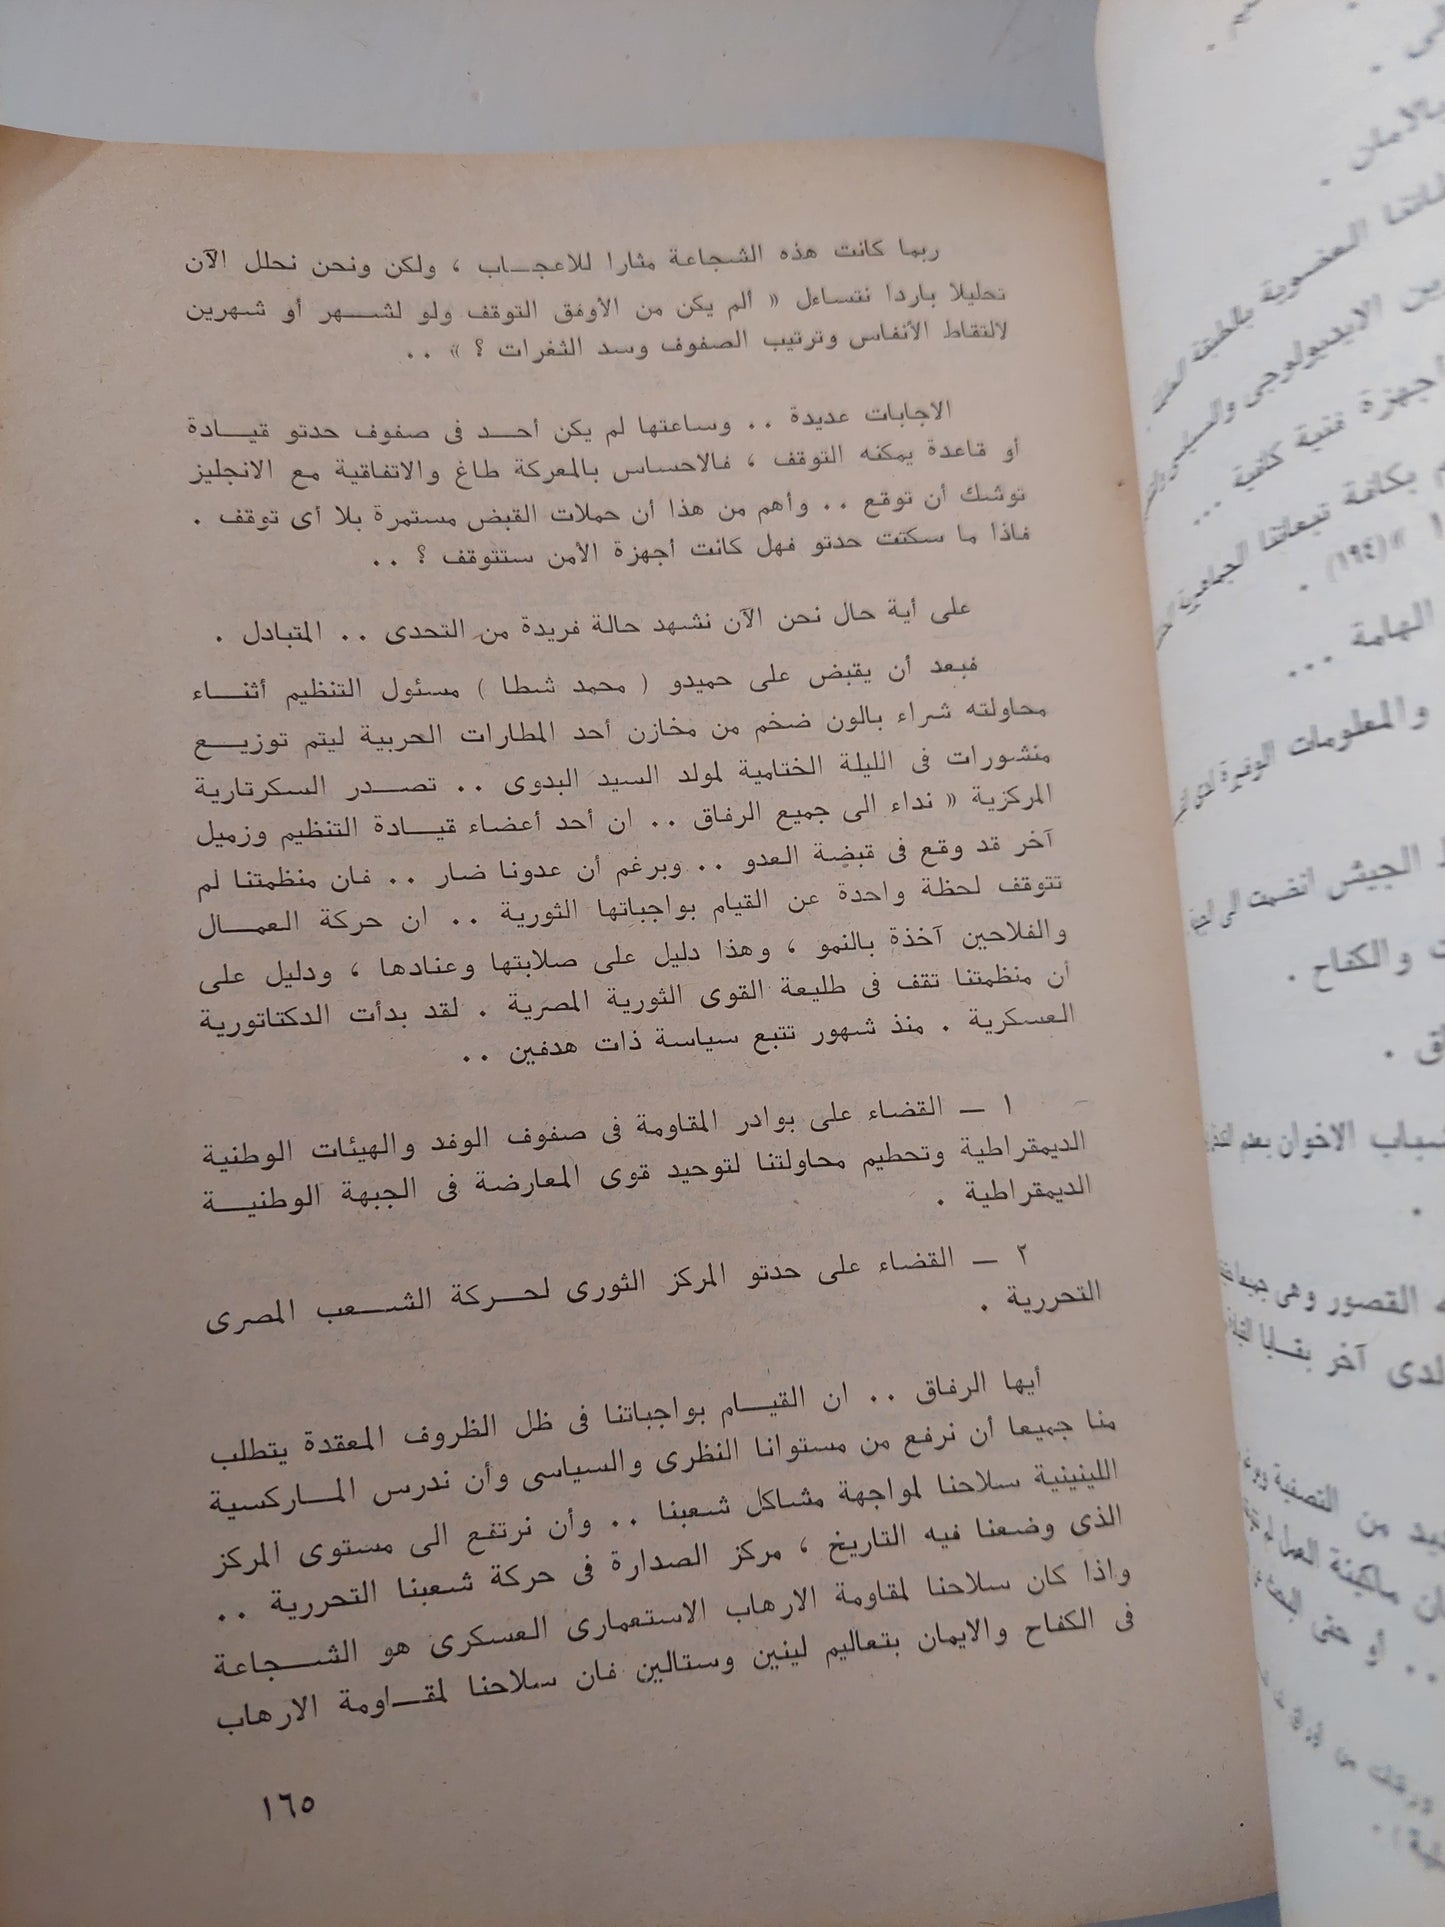 ربما كانت هذه الشجاعة مثارا للاعجاب ، ولكن ونحن نحلل الآن
تحليلا باردا نتساءل « ألم يكن من الأوفق التوقف ولو لشهر أو شهرين
لالتقاط الأنفاس وترتيب الصفوف وسد الثغرات ؟ » ٠٠
الاجابات عديدة ٠٠ وساعتها لم يكن أحد فى صفوف حدتو قيادة
أو قاعدة يمكنه التوقف ، فالاحساس بالمعركة طاغ والاتفاقية مع الانجليز
توشك أن توقع ٠٠ وأهم من هذا أن حملات القبض مستمرة بلا أى توقف ٠
فاذا ما سكتت حدتو فهل كانت أجهزة الأمن ستتوقف ؟ ٠٠
على أية حال نحن الآن نشهد حالة فريدة من التحدى ٠٠ المتبادل ٠
فبعد أن يقبض على حميدو ( محمد شطا ) مسئول التنظيم أثناء
محاولته شراء بالون ضخم من مخازن أحد المطارات الحربية ليتم توزيع
منشورات فى الليلة الختامية لمولد السيد البدوى ٠٠ تصدر السكرتارية
المركزية « نداء الى جميع الرفاق ٠٠ ان أحد أعضاء قيادة التنظيم وزميل
آخر قد وقع فى قبضة العدو ٠٠ وبرغم أن عدونا ضار ٠٠ فان منظمتنا لم
تتوقف لحظة واحدة عن القيام بواجباتها الثورية ٠٠ ان حركة العمال
والفلاحين آخذة بالنمو ، وهذا دليل على صلابتها وعنادها ، ودليل على
أن منظمتنا تقف فى طليعة القوى الثورية المصرية ٠ لقد بدأت الدكتاتورية
العسكرية ٠ منذ شهور تتبع سياسة ذات هدفين ٠٠
١ ــ القضاء على بوادر المقاومة فى صفوف الوفد والهيئات الوطنية
الديمقراطية وتحطيم محاولتنا لتوحيد قوى المعارضة فى الجبهة الوطنية
الديمقراطية ٠
٢ ــ القضاء على حدتو المركز الثورى لحركة الشعب المصرى
التحررية ٠
أيها الرفاق ٠٠ ان القيام بواجباتنا فى ظل الظروف المعقدة يتطلب
منا جميعا أن نرفع من مستوانا النظرى والسياسى وأن ندرس الماركسية
اللينينية سلاحنا لمواجهة مشاكل شعبنا ٠٠ وأن نرتفع الى مستوى المركز
الذى وضعنا فيه التاريخ ، مركز الصدارة فى حركة شعبنا التحررية ٠٠
واذا كان سلاحنا لمقاومة الارهاب الاستعمارى العسكرى هو الشجاعة
فى الكفاح والايمان بتعاليم لينين وستالين فان سلاحنا لمقاومة الارهاب
١٦٥
بالامان ٠
العضوية
الايديولوجى
أجهزة فنية ٠٠٠
بكافة تبعاتنا
» (١٩٤) ٠
الهامة ٠٠٠
والمعلومات الوفيرة
الجيش انضمت الى
والكفاح ٠
شباب الاخوان
القصور وهى
لدى آخر
من التصفية